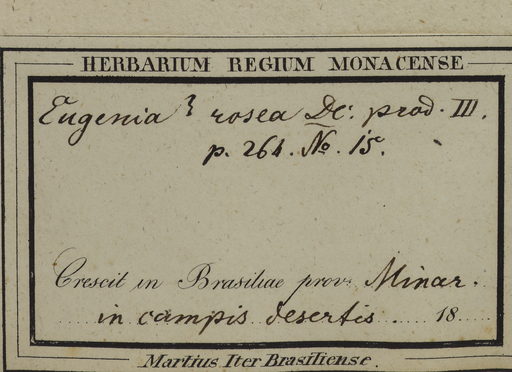 HERBARIUM REGIUM MONACENSE
Eugenia rosea DC. prod. III.
p. 264. No. 15.
Crescit in Brasiliae prov. Minar.
in campis desertis 18
Martius Iter Brasiliense.